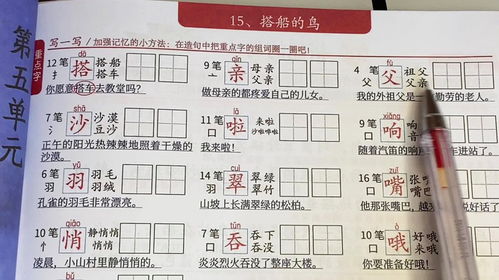 第五单元
15、搭船的鸟
重点字
写一写/加强记忆的小方法：在造句中把重点字的组词圈一圈吧！
dā
12笔 搭 搭船
扌 搭车
你愿意搭车去教堂吗？
9笔 亲 亲人
母亲
父亲
做母亲的都疼爱自己的儿女。
fù
4笔 父 祖父
父 父亲
我的外祖父是一 勤劳的老人。
shā
7笔 沙 沙漠
氵 豆沙
正午的阳光热辣辣地照着干燥的
沙漠。
la
11笔 啦 来啦
口
我来啦！
xiǎng
9笔 响
口
随着汽笛的响 车进站了。
yǔ
6笔 羽 羽毛
羽 羽绒
孔雀的羽毛非常漂亮。
cuì
14笔 翠 翠绿
羽 翠竹
山坡上长满翠绿的松柏。
zuǐ
16笔 嘴 嘴巴
口
他那张嘴巴，越来
qiāo
10笔 悄 静悄悄
忄 悄悄
凌晨，小山村里静悄悄的。
tūn
7笔 吞 吞下
口 吞没
炎炎烈火吞没了整座大楼。
ò
10笔 哦 好哦
口 来哦
你要准备好哦！